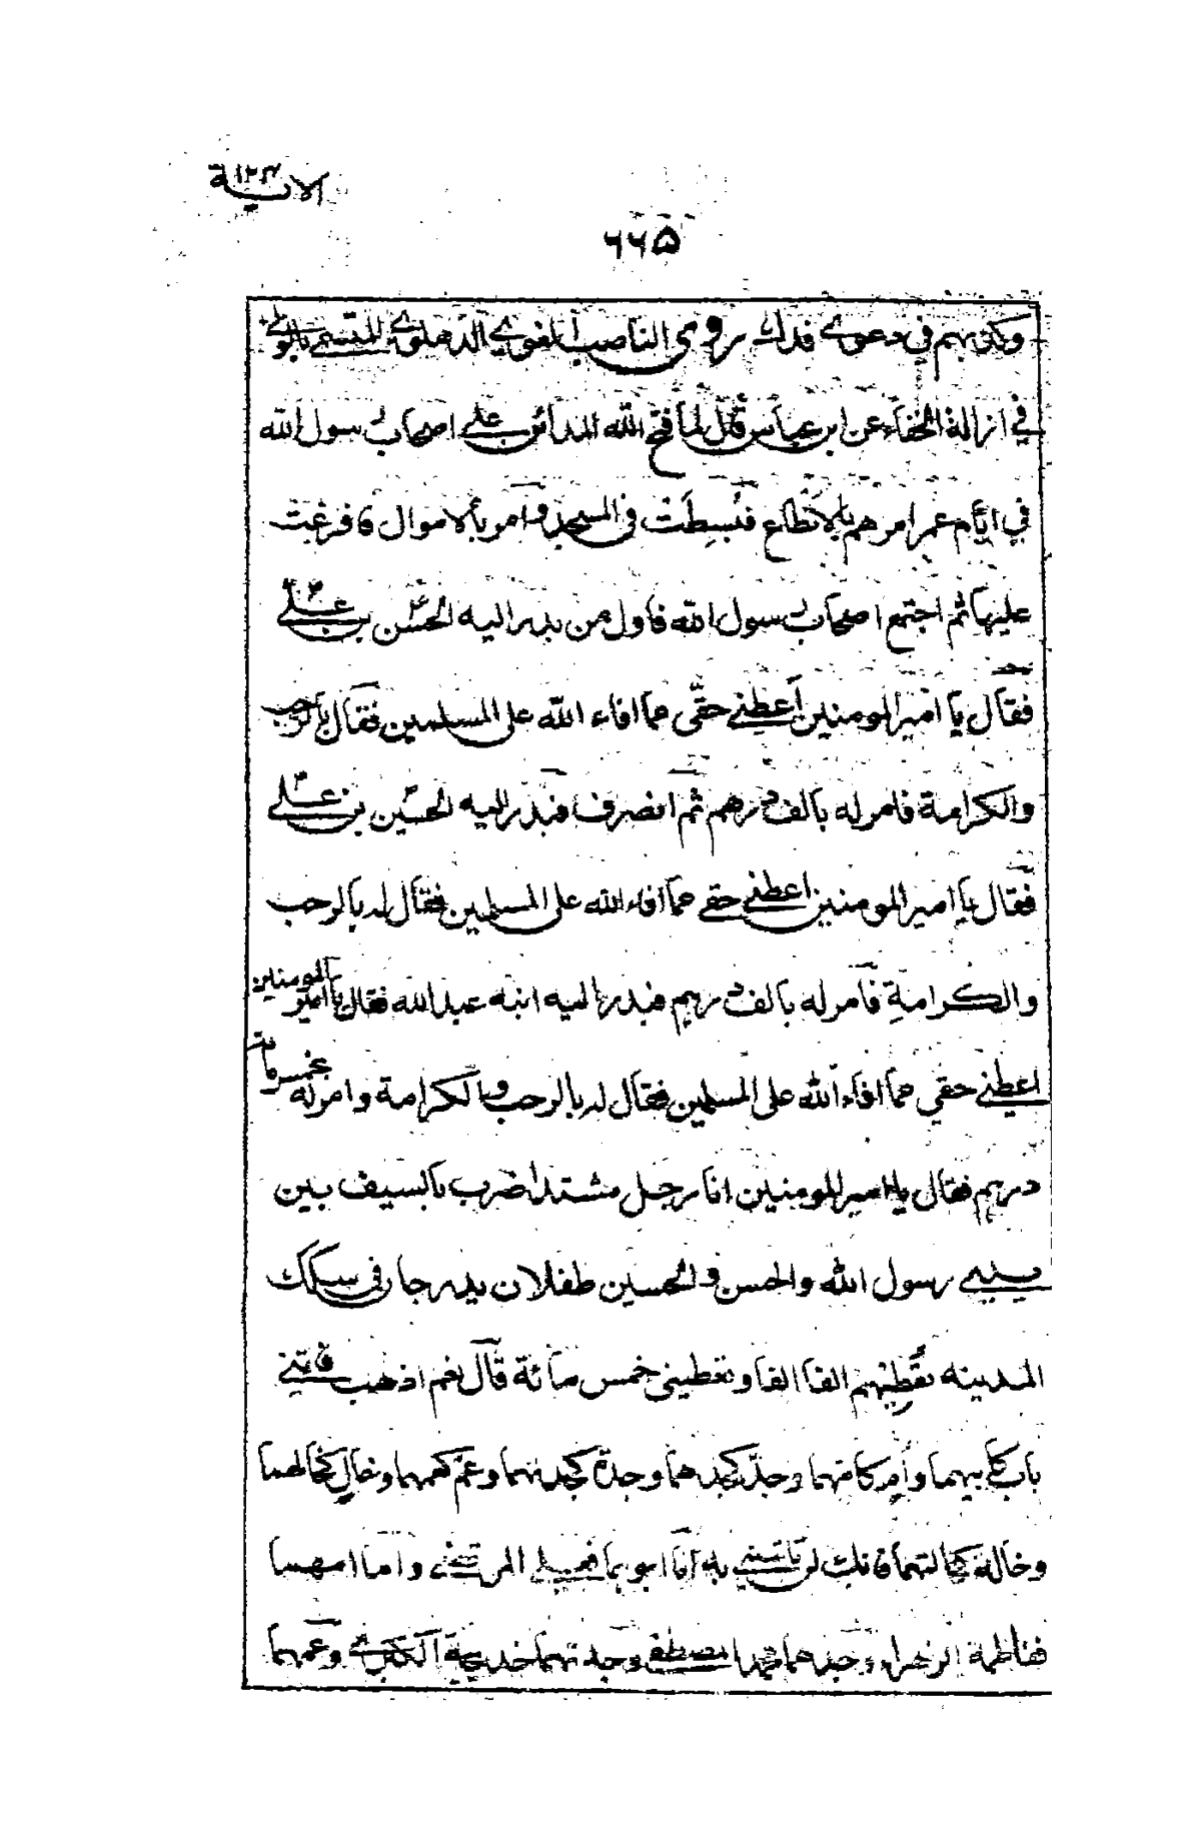 الاية ١٢٣
٦٦۵
وكذبهم في دعوى فدك روى الناصب الغوي الدهلوي المتسمى بالولي
في ازالة الخفاء عن ابن عباس قال لما فتح الله المدائن على اصحاب رسول الله
في ايام عمر امرهم بالانطاع فبُسِطَت في المسجد وامر بالاموال فافرغت
عليها ثم اجتمع اصحاب رسول الله فاول من بدر اليه الحسن بن علي
فقال يا امير المومنين اَعطِني حقّى مما افاء الله على المسلمين فقال بالرحب
والكرامة فامر له بالف درهم ثم انصرف فبدر اليه الحسين بن علي
فقال يا امير المومنين اعطني حقي مما افاء الله على المسلمين فقال له بالرحب
والكرامةِ فامر له بالف درهم فبدر اليه ابنه عبد الله فقال يا امير المومنين
اعطني حقي مما افاء الله على المسلمين فقال له بالرحب والكرامة وامر له بخمس مائة
درهم فقال يا امير المومنين انا رجل مشتد اضرب بالسيف بين
يديي رسول الله والحسن والحسين طفلان يدرجان في سكك
المدينه تُعُطِيهم الفا الفا وتعطيني خمس مائة قال نعم اذهب فاتني
باب كابيهما وأمٍ كامهما وجدّ كجدهما وجدة كجدتهما وعمّ كعمهما وخالٍ كخالهما
وخالة كخالتهما فانك لن تاتيني به اما ابوهما فعلي المرتضى واما امهما
ففاطمة الزهراء وجدهما محمد المصطفى وجدتهما خديجة الكبرى وعمهما